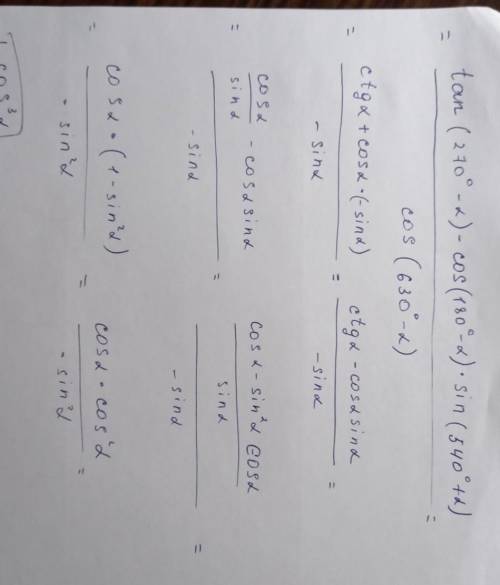 = tan(270°-α)-cos(180°-α)·sin(540°+α) =
cos(630°-α)
= ctgα+cosα·(-sinα) = ctgα-cosαsinα =
-sinα -sinα
= cosα/sinα - cosαsinα = cosα-sin²αcosα/sinα =
-sinα -sinα
= cosα·(1-sin²α) = cosα·cos²α =
-sin²α -sin²α
cos³α